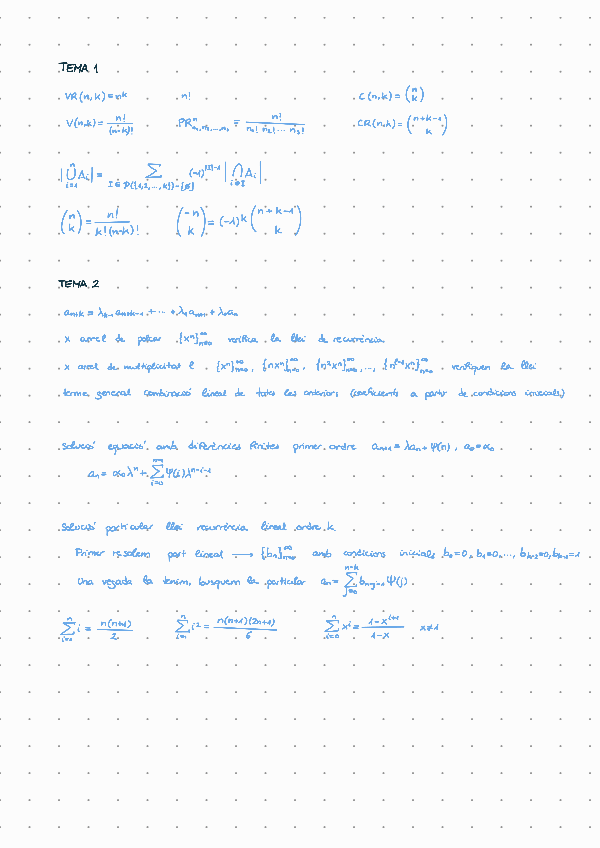 TEMA 1
VR(n,k) = n^k    n!    C(n,k) = (n k)
V(n,k) = n!/(n-k)!    PR^n_{n₁,n₂,...,n_s} = n!/(n₁! n₂! ... n_s!)    CR(n,k) = (n+k-1 k)
|⋃_{i=1}^{n} A_i| = ∑_{I∈P({1,2,...,k})-{∅}} (-1)^{|I|-1} |⋂_{i∈I} A_i|
(n k) = n!/(k!(n-k)!)    (-n k) = (-1)^k (n+k-1 k)
TEMA 2
a_{n+k} = λ_{k-1} a_{n+k-1} + ... + λ₁a_{n+1} + λ₀a_n
x arrel de polcar {x^n}_{n=0}^∞ verifica la llei de recurrència
x arrel de multiplicitat l {x^n}_{n=0}^∞, {nx^n}_{n=0}^∞, {n²x^n}_{n=0}^∞, ..., {n^{l-1}x^n}_{n=0}^∞ verifiquen la llei
terme general combinació lineal de totes les anteriors (coeficients a partir de condicions inicials)
Solució equació amb diferències finites primer ordre a_{n+1} = λa_n + Ψ(n), a₀ = α₀
a_n = α₀λ^n + ∑_{i=0}^{n-1} Ψ(i)λ^{n-i-1}
Solució particular llei recurrència lineal ordre k
Primer resolem part lineal → {b_n}_{n=0}^∞ amb condicions inicials b₀=0, b₁=0, ..., b_{k-2}=0, b_{k-1}=1
Una vegada la tenim, busquem la particular a_n = ∑_{j=0}^{n-k} b_{n-j-1} Ψ(j)
∑_{i=0}^{n} i = n(n+1)/2    ∑_{i=1}^{n} i² = n(n+1)(2n+1)/6    ∑_{i=0}^{n} x^i = (1-x^{i+1})/(1-x)    x≠1